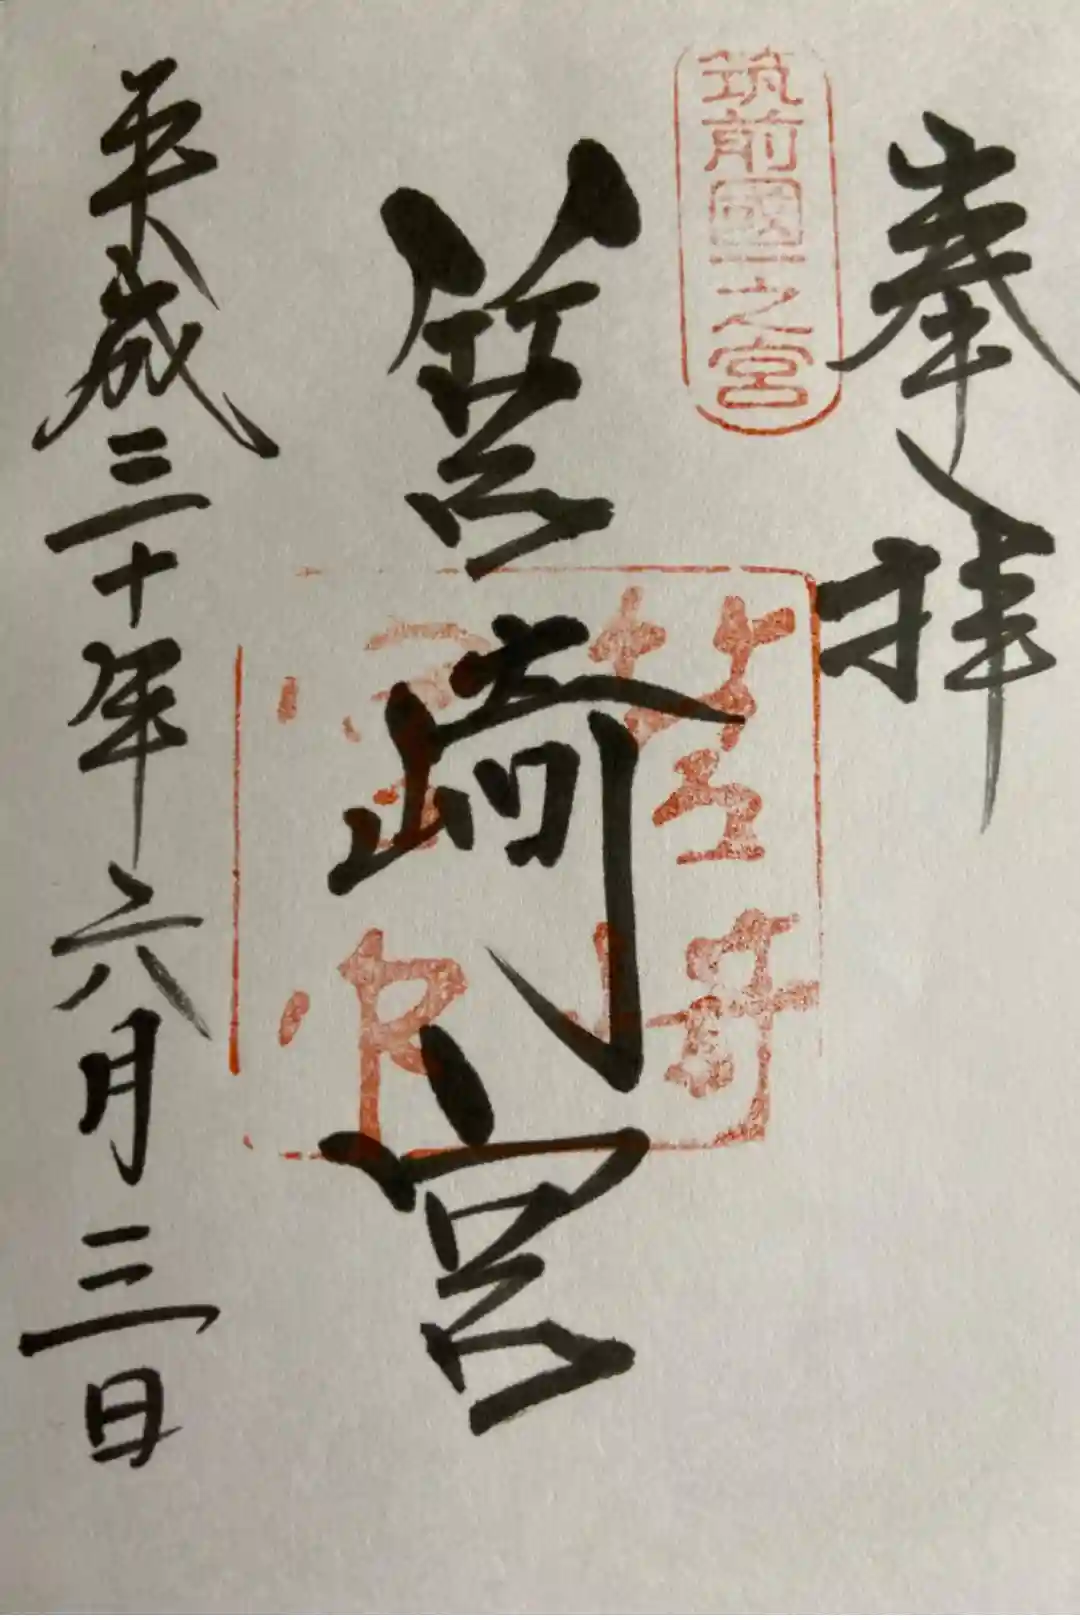 奉拝
筑前國一之宮
筥崎宮
筥崎宮印
平成三十年六月三日